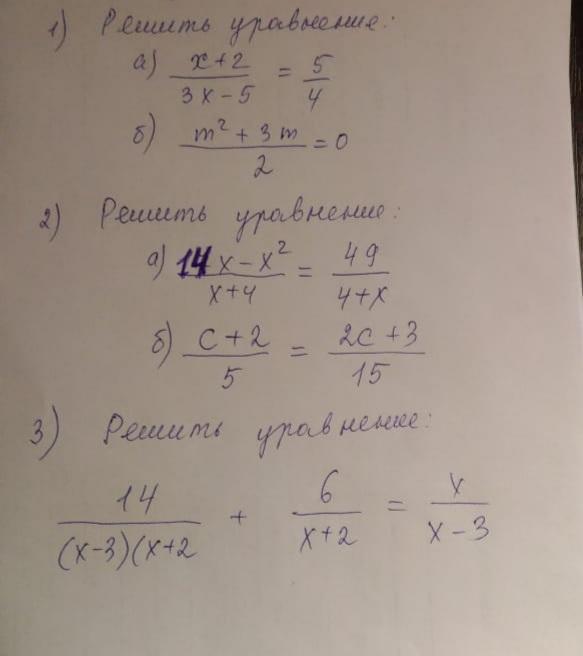 1) Решить уравнение:
а) x+2 / 3x-5 = 5/4
б) m² + 3m / 2 = 0
2) Решить уравнение:
а) 14x - x² / x+4 = 49 / 4+x
б) c+2 / 5 = 2c+3 / 15
3) Решить уравнение:
14 / (x-3)(x+2 + 6 / x+2 = x / x-3